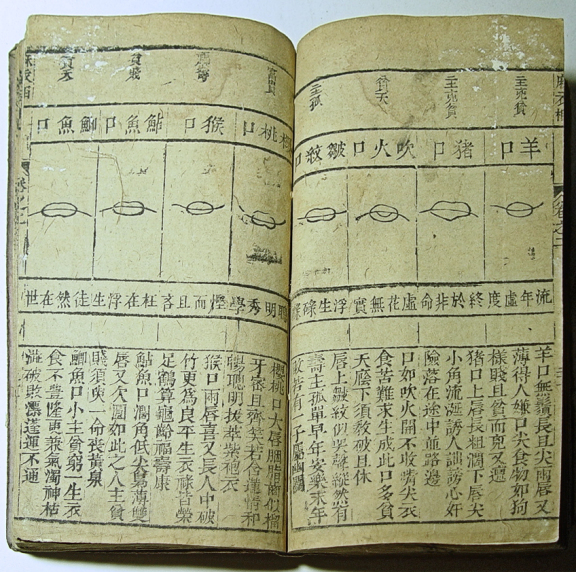 主兇貧
主克貧
貧夭
主孤
羊口
猪口
吹火口
皺紋口
流年虚度
終於非命
虚花無實
浮生碌
羊口無鬚長且尖兩唇又
薄得人嫌口尖食物如狗
樣賤且貧而兇又遭
猪口上唇長粗濶下唇尖
小角流涎誘人訕謗心奸
險落在途中並路邊
口如吹火開不收嘴尖衣
食苦難求生成此口多貧
夭廕下須教破且休
唇上皺紋似哭聲縱然有
壽主孤單早年安樂末年
敗若有一子屬幽
富貴
壽
貧賤
貧夭
櫻桃口
猴口
鮎魚口
鯽魚口
聰明秀學
慳而且吝
枉在浮生
徒然在世
櫻桃口大唇胭脂齒似榴
牙密且齊笑若含蓮情和
暢聰明拔萃紫袍衣
猴口兩唇喜又長人中破
竹更為良平生衣祿皆榮
足鶴算龜齡福壽康
鮎魚口濶角低尖梟薄雙
唇又欠圓如此之人主貧
賤須臾一命喪黃泉
鯽魚口小主貧窮一生衣
食不豐隆更兼氣濁神枯
澁破敗漂蓬運不通